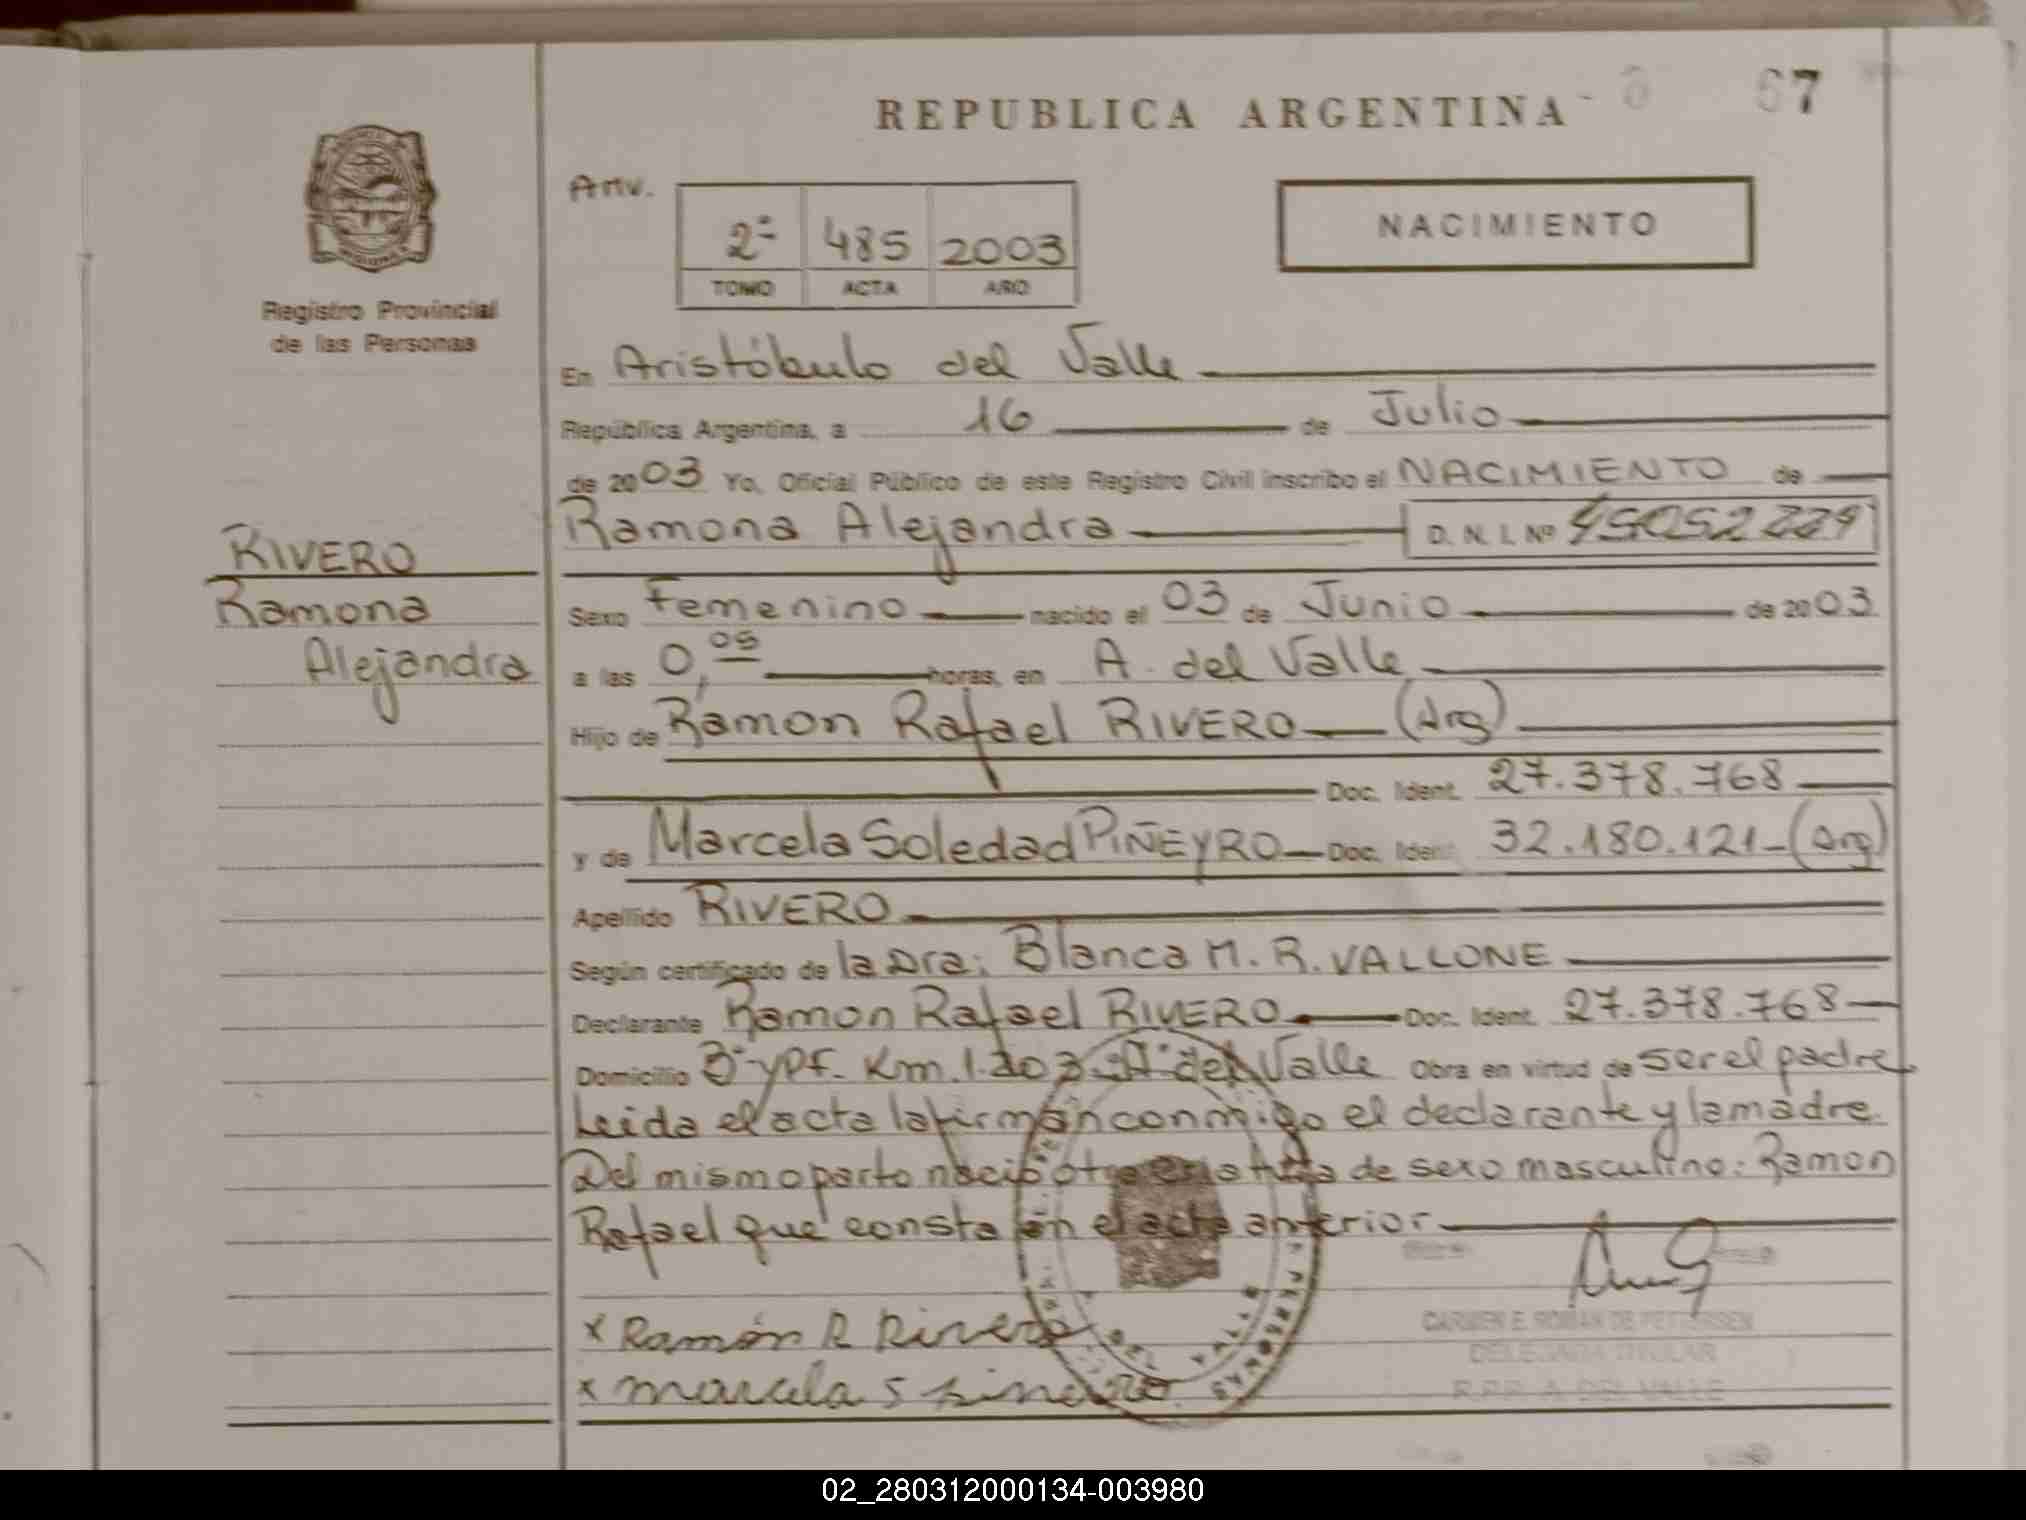 67
REPUBLICA ARGENTINA
Registro Provincial
de las Personas
Anv.
2ª 485 2003
TOMO ACTA AÑO
NACIMIENTO
En Aristóbulo del Valle
República Argentina, a 16 de Julio
de 2003 Yo, Oficial Público de este Registro Civil inscribo el NACIMIENTO de
Ramona Alejandra D. N. I. Nº
RIVERO
Ramona
Alejandra
Sexo Femenino nacido el 03 de Junio de 2003
a las 0,05 horas, en A. del Valle
Hijo de Ramon Rafael RIVERO (Arg)
Doc. Ident. 27.378.768
y de Marcela Soledad PIÑEYRO Doc. Ident. 32.180.121 (Arg)
Apellido RIVERO
Según certificado de la Dra: Blanca M. R. VALLONE
Declarante Ramon Rafael RIVERO Doc. Ident. 27.378.768
Domicilio Bº YPF. Km. 1.203 Aº del Valle Obra en virtud de ser el padre
Leida el acta la firman conmigo el declarante y la madre.
Del mismo parto nació otra criatura de sexo masculino: Ramon
Rafael que consta en el acta anterior
x Ramón R Rivero
x marcela S
CARMEN E. ROMAN DE PETTERSEN
DELEGADA TITULAR
R.P.P. A. DEL VALLE
02_280312000134-003980